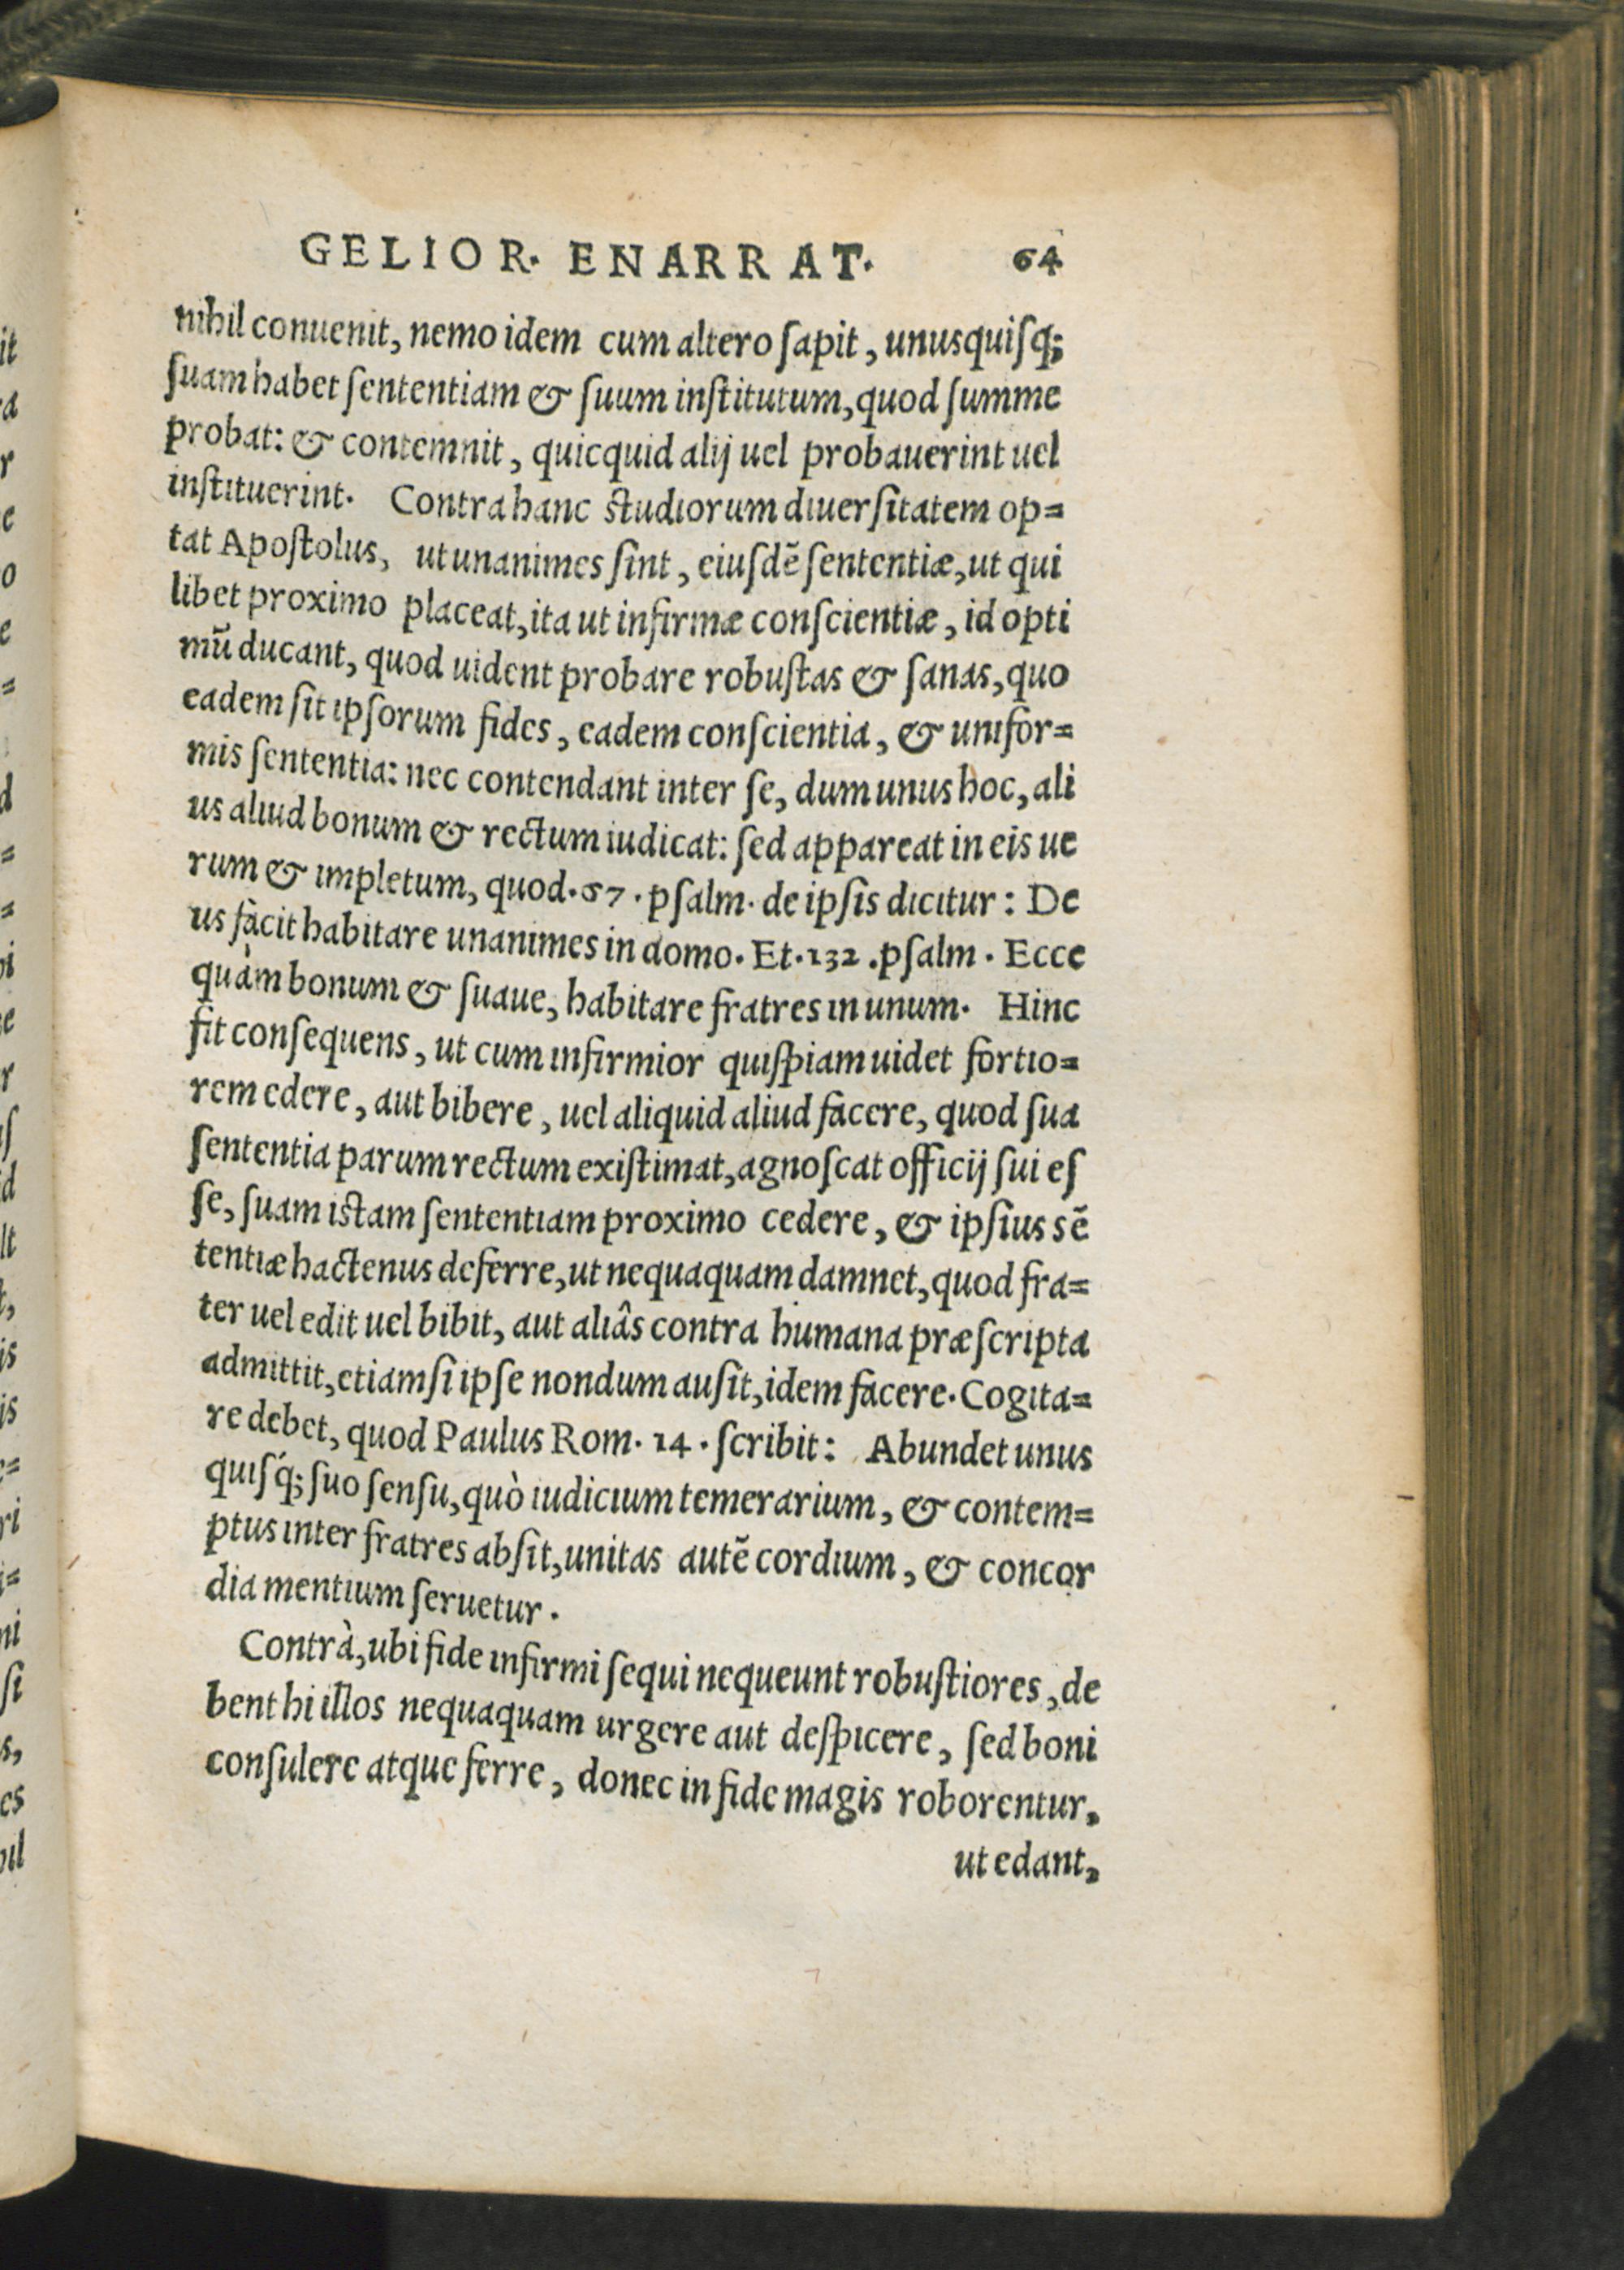 GELIOR. ENARRAT. 64
nihil conuenit, nemo idem cum altero ſapit, unusquiſq;
ſuam habet ſententiam & ſuum inſtitutum, quod ſumme
probat: & contemnit, quicquid alij uel probauerint uel
inſtituerint. Contra hanc ſtudiorum diuerſitatem op=
tat Apoſtolus, ut unanimes ſint, eiuſdē ſententiæ, ut qui
libet proximo placeat, ita ut infirmæ conſcientiæ, id opti
mū ducant, quod uident probare robuſtas & ſanas, quo
eadem ſit ipſorum fides, eadem conſcientia, & unifor=
mis ſententia: nec contendant inter ſe, dum unus hoc, ali
us aliud bonum & rectum iudicat: ſed appareat in eis ue
rum & impletum, quod. 67. pſalm. de ipſis dicitur: De
us facit habitare unanimes in domo. Et. 132. pſalm. Ecce
quàm bonum & ſuaue, habitare fratres in unum. Hinc
fit conſequens, ut cum infirmior quiſpiam uidet fortio=
rem edere, aut bibere, uel aliquid aliud facere, quod ſua
ſententia parum rectum exiſtimat, agnoſcat officij ſui eſ
ſe, ſuam istam ſententiam proximo cedere, & ipſius sē
tentiæ hactenus deferre, ut nequaquam damnet, quod fra=
ter uel edit uel bibit, aut aliâs contra humana præſcripta
admittit, etiamſi ipſe nondum auſit, idem facere. Cogita=
re debet, quod Paulus Rom. 14. ſcribit: Abundet unus
quiſq́; ſuo ſenſu, quò iudicium temerarium, & contem=
ptus inter fratres abſit, unitas autē cordium, & concor
dia mentium ſeruetur.
Contrà, ubi fide infirmi ſequi nequeunt robuſtiores, de
bent hi illos nequaquam urgere aut deſpicere, ſed boni
conſulere atque ferre, donec in fide magis roborentur,
ut edant,